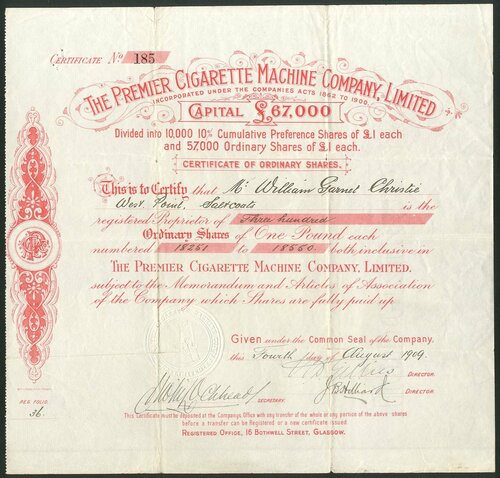 CERTIFICATE No 185
THE PREMIER CIGARETTE MACHINE COMPANY, LIMITED
INCORPORATED UNDER THE COMPANIES ACTS 1862 TO 1900.
CAPITAL £67,000
Divided into 10,000 10% Cumulative Preference Shares of £1 each
and 57,000 Ordinary Shares of £1 each.
CERTIFICATE OF ORDINARY SHARES.
This is to Certify that Mr William Garnet Christie
West Point, Saltcoats is the
registered Proprietor of Three hundred
Ordinary Shares of One Pound each
numbered 18261 to 18560 both inclusive in
THE PREMIER CIGARETTE MACHINE COMPANY, LIMITED.
subject to the Memorandum and Articles of Association
of the Company which Shares are fully paid up
Given under the Common Seal of the Company,
this Fourth day of August 1909.
DIRECTOR.
DIRECTOR.
SECRETARY.
REG. FOLIO
36
This Certificate must be deposited at the Companys Office with any transfer of the whole or any portion of the above shares
before a transfer can be Registered or a new certificate issued.
REGISTERED OFFICE, 16 BOTHWELL STREET, GLASGOW.